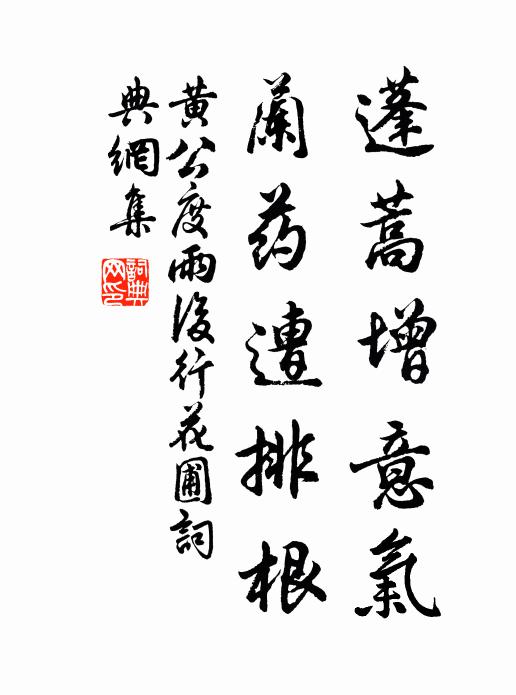 蓬蒿增意氣
蘭药遭排根
黃公度雨後行花圃詞
典網集
詞典网印